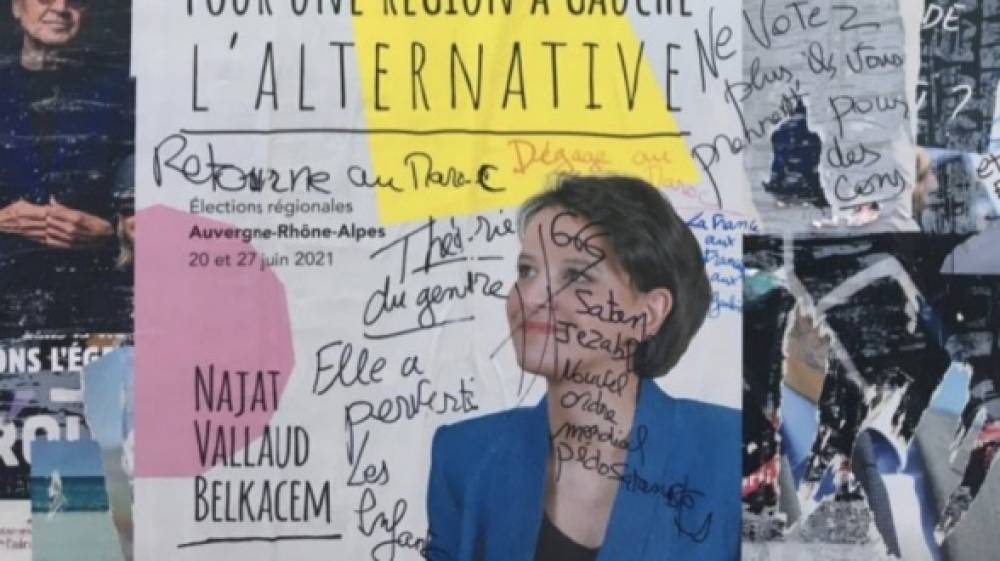 POUR UNE RÉGION À GAUCHE
L'ALTERNATIVE
Retourne au Maroc
Dégage au
Maroc
Élections régionales
Auvergne-Rhône-Alpes
20 et 27 juin 2021
Théorie
du gentre
Elle a
perverti
Les
Enfants
NAJAT
VALLAUD
BELKACEM
666
Satan
Jezabel
Nouvel
ordre
mondial
pédosatanistes
Ne Votez
plus, ils vous
prennent pour
des
cons
La France
aux
Français
aux
DE
?
et
ONS L'ÉG